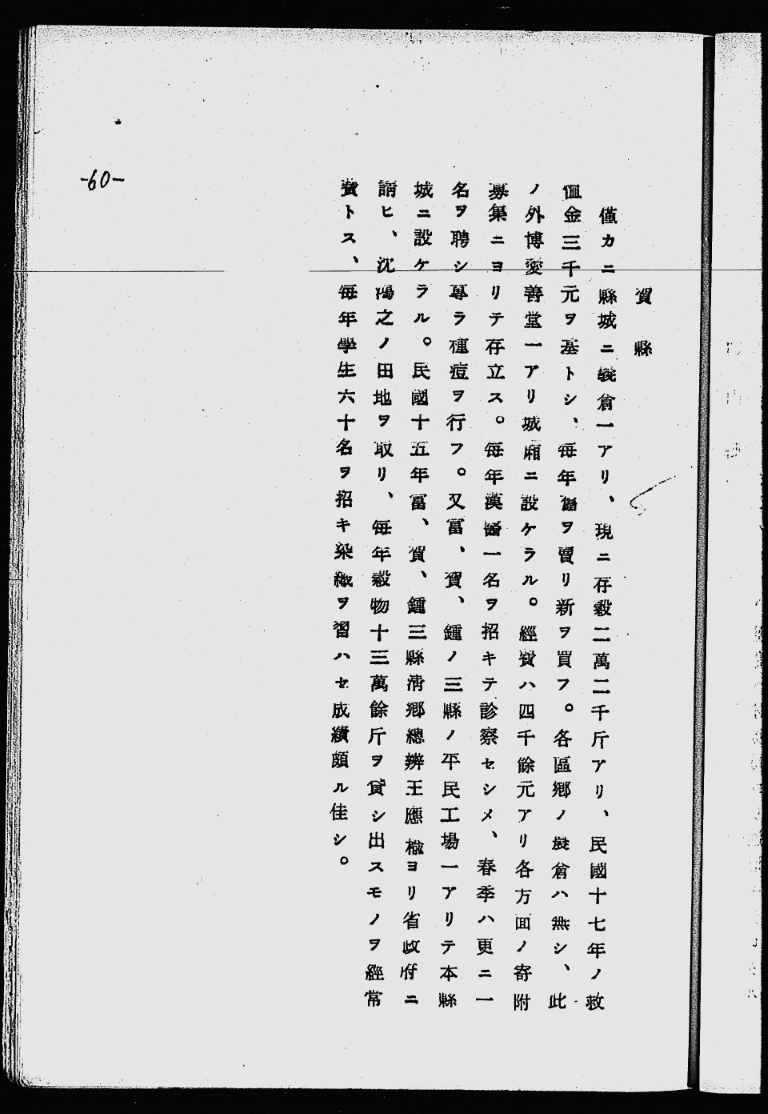 賀縣
僅カニ縣城ニ農倉一アリ、現ニ存穀二萬二千斤アリ、民國十七年ノ救
恤金三千元ヲ基トシ、每年舊ヲ賣リ新ヲ買フ。各區鄉ノ農倉ハ無シ、此
ノ外博愛善堂一アリ城廂ニ設ケラル。經費ハ四千餘元アリ各方面ノ寄附
募集ニヨリテ存立ス。每年漢醫一名ヲ招キテ診察セシメ、春季ハ更ニ一
名ヲ聘シ專ラ種痘ヲ行フ。又富、賀、鍾ノ三縣ノ平民工場一アリテ本縣
城ニ設ケラル。民國十五年富、賀、鍾三縣淸鄉總辦王應楡ヨリ省政府ニ
請ヒ、沈鴻之ノ田地ヲ取リ、每年穀物十三萬餘斤ヲ貸シ出スモノヲ經常
費トス、每年學生六十名ヲ招キ染織ヲ習ハセ成績頗ル佳シ。
-60-